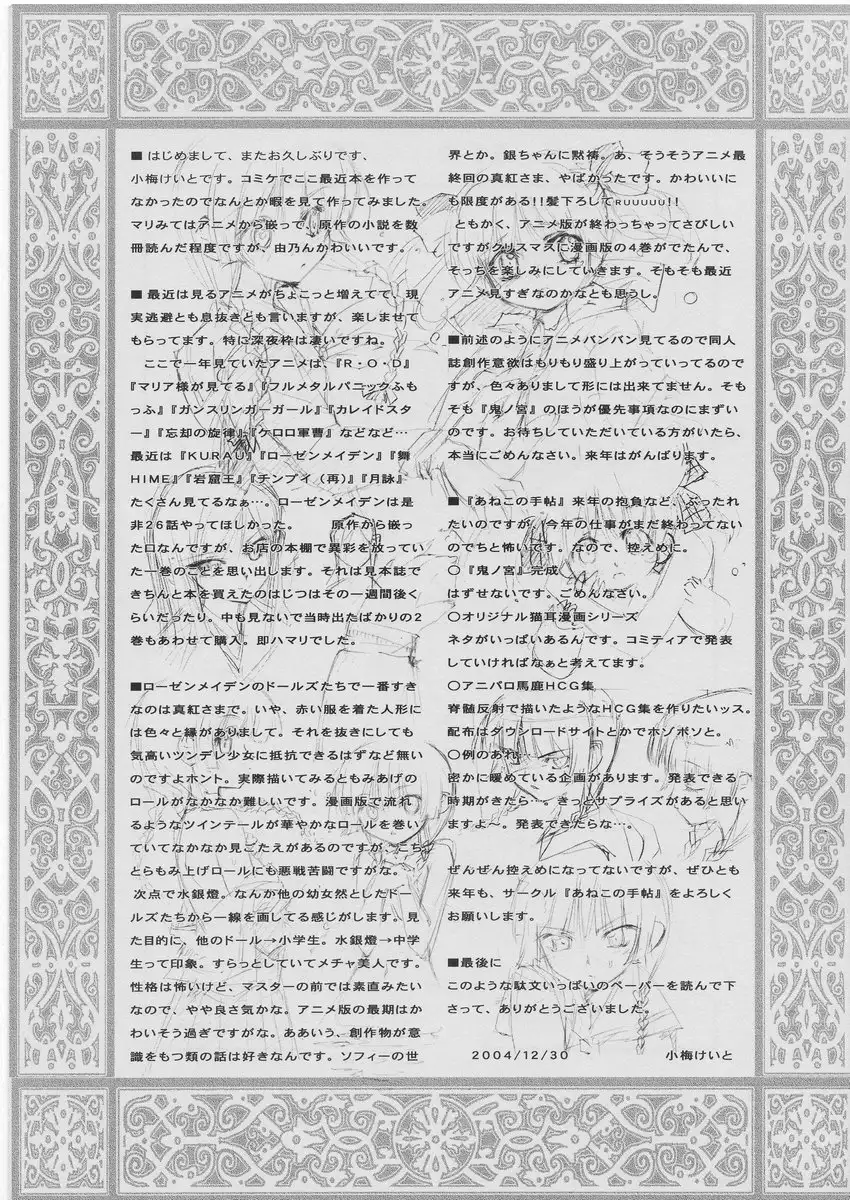 ■ はじめまして、またお久しぶりです、
小梅けいとです。コミケでここ最近本を作って
なかったのでなんとか暇を見て作ってみました。
マリみてはアニメから嵌って、原作の小説を数
冊読んだ程度ですが、由乃んかわいいです。
■ 最近は見るアニメがちょこっと増えてて、現
実逃避とも息抜きとも言いますが、楽しませて
もらってます。特に深夜枠は凄いですね。
ここで一年見ていたアニメは、『R・O・D』
『マリア様が見てる』『フルメタルパニックふも
っふ』『ガンスリンガーガール』『カレイドスタ
ー』『忘却の旋律』『ケロロ軍曹』などなど…
最近は『KURAU』『ローゼンメイデン』『舞
HIME』『岩窟王』『チンプイ(再)』『月詠』
たくさん見てるなぁ…。ローゼンメイデンは是
非26話やってほしかった。 原作から嵌っ
た口なんですが、お店の本棚で異彩を放ってい
た一巻のことを思い出します。それは見本誌で
きちんと本を買えたのはじつはその一週間後く
らいだったり。中も見ないで当時出たばかりの2
巻もあわせて購入。即ハマリでした。
■ローゼンメイデンのドールズたちで一番すき
なのは真紅さまで。いや、赤い服を着た人形に
は色々と縁がありまして。それを抜きにしても
気高いツンデレ少女に抵抗できるはずなど無い
のですよホント。実際描いてみるともみあげの
ロールがなかなか難しいです。漫画版で流れ
るようなツインテールが華やかなロールを巻い
ていてなかなか見ごたえがあるのですが、こち
とらもみ上げロールにも悪戦苦闘ですがな。
次点で水銀燈。なんか他の幼女然としたドー
ルズたちから一線を画してる感じがします。見
た目的に、他のドール→小学生。水銀燈→中学
生って印象。すらっとしていてメチャ美人です。
性格は怖いけど、マスターの前では素直みたい
なので、やや良さ気かな。アニメ版の最期はか
わいそう過ぎですがな。ああいう、創作物が意
識をもつ類の話は好きなんです。ソフィーの世
界とか。銀ちゃんに黙祷。あ、そうそうアニメ最
終回の真紅さま、やばかったです。かわいいに
も限度がある!!髪下ろしてRUUUUU!!
ともかく、アニメ版が終わっちゃってさびしい
ですがクリスマスに漫画版の4巻がでたんで、
そっちを楽しみにしていきます。そもそも最近
アニメ見すぎなのかなとも思うし。
■前述のようにアニメバンバン見てるので同人
誌創作意欲はもりもり盛り上がっていってるので
すが、色々ありまして形には出来てません。そも
そも『鬼ノ宮』のほうが優先事項なのにまずい
のです。お待ちしていただいている方がいたら、
本当にごめんなさい。来年はがんばります。
■『あねこの手帖』来年の抱負など、ぶったれ
たいのですが、今年の仕事がまだ終わってない
のでちと怖いです。なので、控えめに。
○『鬼ノ宮』完成
はずせないです。ごめんなさい。
○オリジナル猫耳漫画シリーズ
ネタがいっぱいあるんです。コミティアで発表
していければなぁと考えてます。
○アニパロ馬鹿HCG集
脊髄反射で描いたようなHCG集を作りたいッス。
配布はダウンロードサイトとかでホソボソと。
○例のあれ……
密かに暖めている企画があります。発表できる
時期がきたら…。きっとサプライズがあると思い
ますよ～。発表できたらな…。
ぜんぜん控えめになってないですが、ぜひとも
来年も、サークル『あねこの手帖』をよろしく
お願いします。
■最後に
このような駄文いっぱいのペーパーを読んで下
さって、ありがとうございました。
2004/12/30 小梅けいと